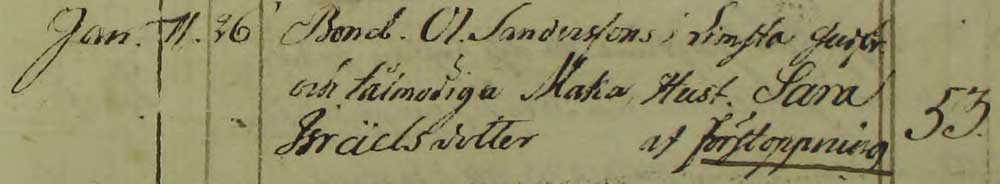 Jan. 11. 26 Bond. Ol. Sanderssons i Limsta
och tålmodiga Maka Hust. Sara 53.
Israëls dotter af förstoppning